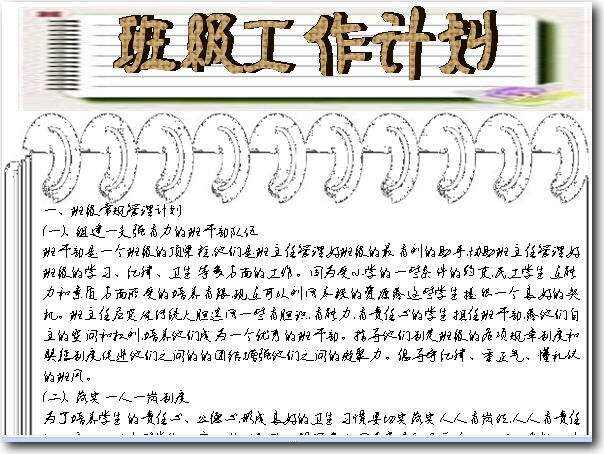 班级工作计划
一、班级常规管理计划
(一)、组建一支强有力的班干部队伍
班干部是一个班级的顶梁柱,他们是班主任管理好班级的最有利的助手,协助班主任管理好
班级的学习、纪律、卫生等多方面的工作。因为受小学的一些条件的约束,民工学生在能
力和素质方面所受的培养有限,现在可以利用系统的资源为这些学生提供一个良好的契
机。班主任应突破传统大胆选用一些有胆识,有能力,有责任心的学生担任班干部,给他们自
主的空间和权利,培养他们成为一个优秀的班干部。指导他们制定班级的各项规章制度和
责任制度,促进他们之间的的团结,增强他们之间的凝聚力。倡导守纪律、重正气、懂礼仪
的班风。
(二)、落实一人一岗制度
为了培养学生的责任心、公德心,形成良好的卫生习惯,要切实落实人人有岗位,人人有责任